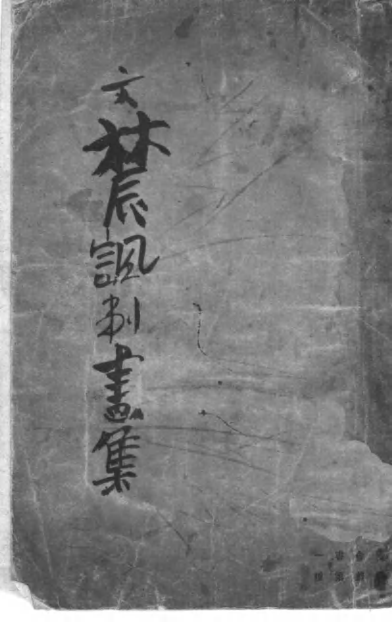 文林辰諷刺畫集